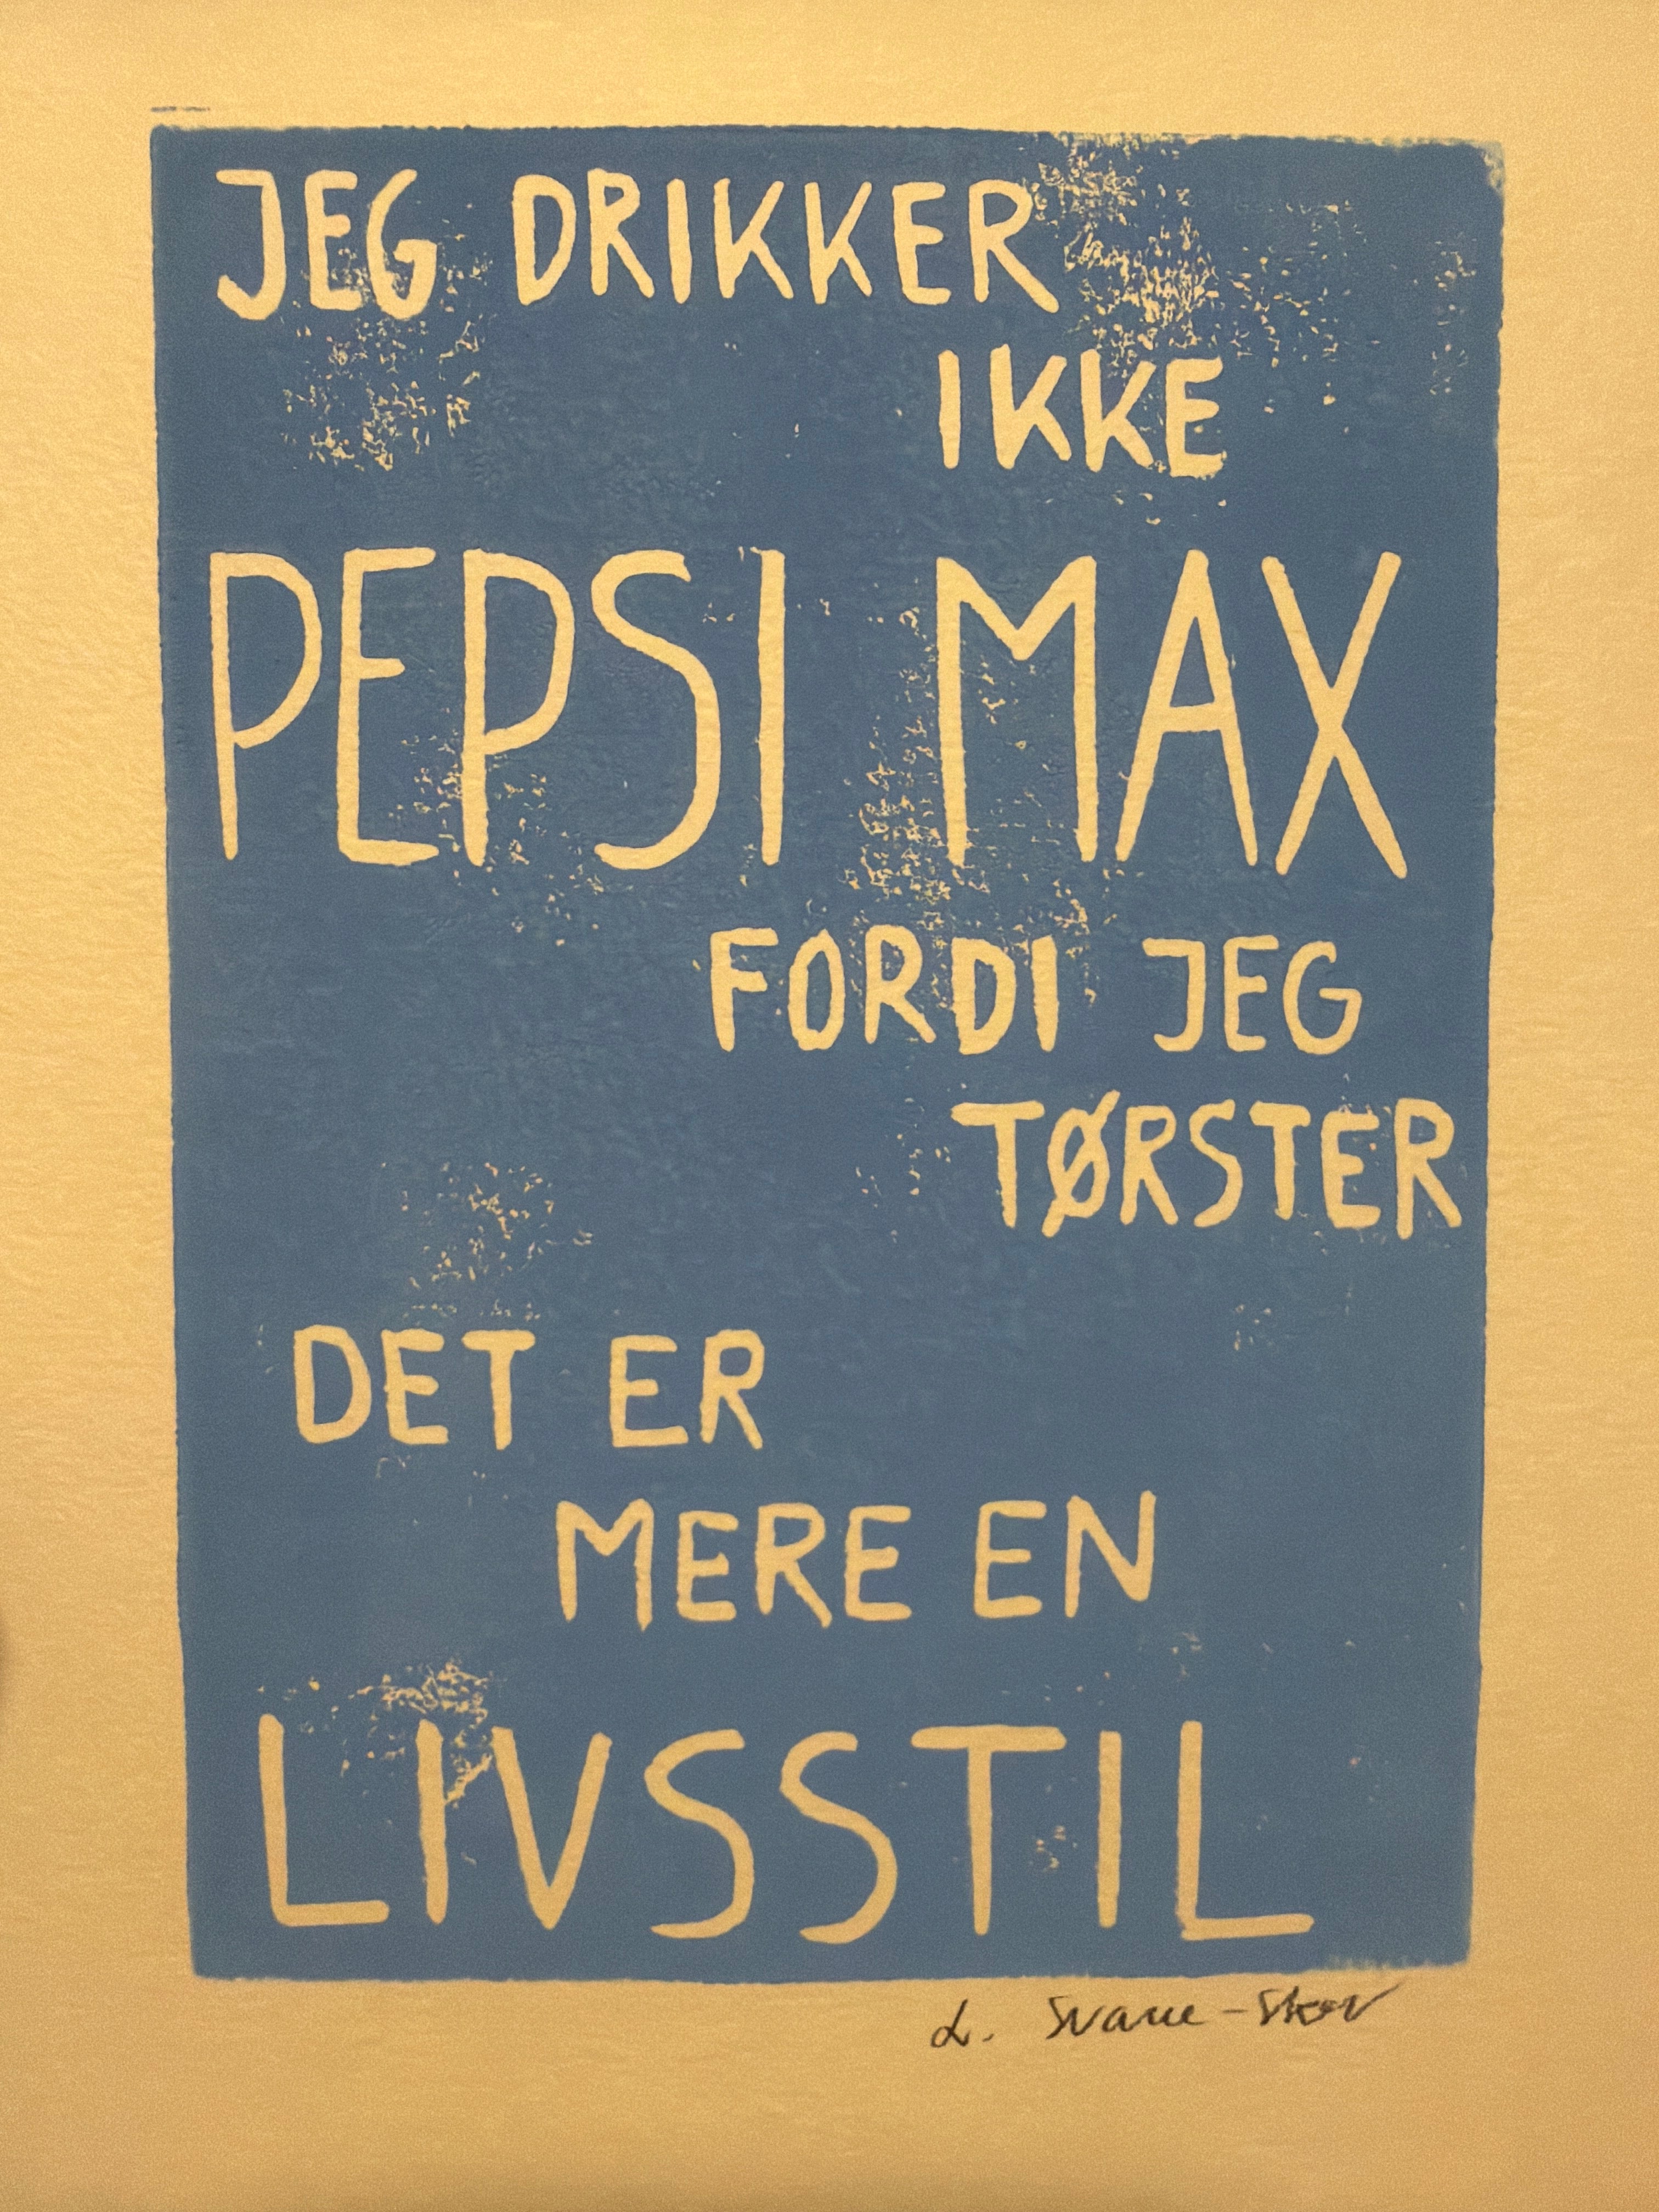 JEG DRIKKER
IKKE
PEPSI MAX
FORDI JEG
TØRSTER
DET ER
MERE EN
LIVSSTIL
L. Svane-Skov